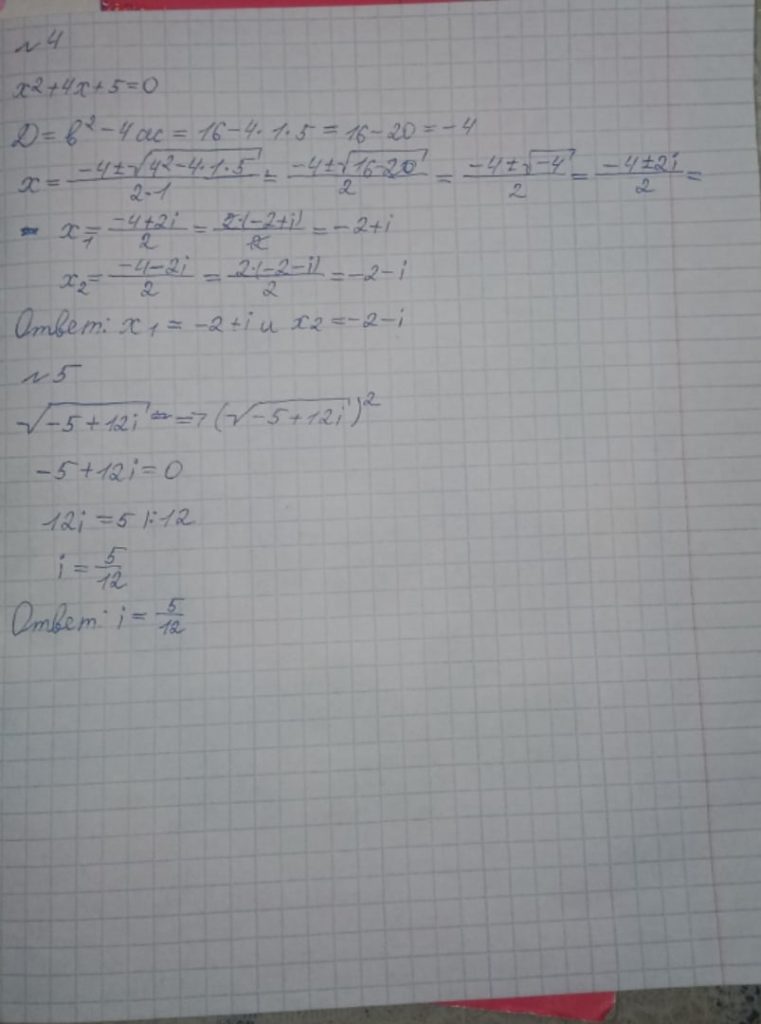 №4
x²+4x+5=0
D=b²-4ac=16-4·1·5=16-20=-4
x=(-4±√(4²-4·1·5))/(2·1)=(-4±√(16-20))/2=(-4±√(-4))/2=(-4±2i)/2=
= x₁=(-4+2i)/2=(2·(-2+i))/2=-2+i
x₂=(-4-2i)/2=(2·(-2-i))/2=-2-i
Ответ: x₁=-2+i и x₂=-2-i
№5
√(-5+12i)=>(√(-5+12i))²
-5+12i=0
12i=5 |:12
i=5/12
Ответ: i=5/12